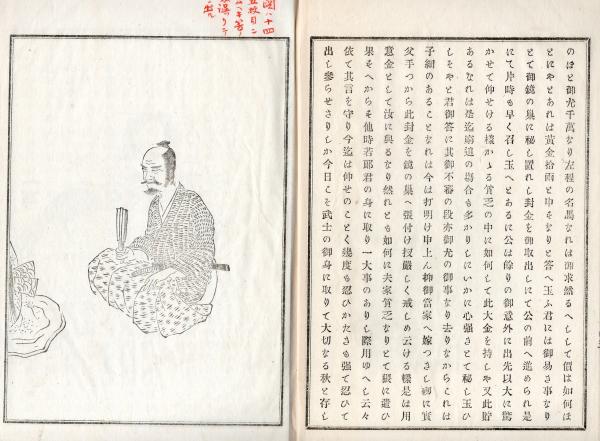 のほと御尤千萬なり左程の名馬なれは頭求然るへしして價は如何ほ
とにやとあれは黄金拾兩と申をなりと答へ玉ふ君には御易さ事なり
とて御鏡の巣に秘し置れし封金を御取出しにて公の前へ進められ是
にて片時も早く召し玉へとあるに公は餘りの御意外に出先以大に驚
かせて仰せける樣かゝる貧乏の中に如何して此大金を持しや又此貯
あるなれは是迄窮迫の塲合も多かりしにいかに心强さとて秘し玉ひ
しそやと君御答に其御不審の段亦御尤の御事なり去りなからこれは
子細のあることなれは今は打明け申上ん抑御當家へ嫁つきし砌に實
父手つから此封金を鏡の巣へ張付け授嚴しく戒しめ云ける樣是は用
意金として汝に與るなり然れとも如何に夫家貧乏なりとて猥に遣ひ
果をへからそ他時若郎君の身に取り一大事のありし際用ゆへし云々
依て其言を守り今迄は仰せのことく幾度も忍ひかたさも强て忍ひて
出し參らせさりしか今日こそ武士の御身に取りて大切なる秋と存し